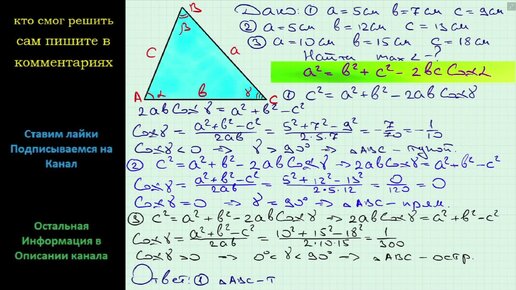 кто смог решить
сам пишите в
комментариях
Ставим лайки
Подписываемся на
Канал
Остальная
Информация в
Описании канала
B
β
c
a
A
α
b
γ
C
Дано: ① a=5см b=7см c=9см
② a=5см b=12см c=13см
③ a=10см b=15см c=18см
Найти max∠-?
a²=b²+c²-2bc Cosα
① c²=a²+b²-2abCosγ
2abCosγ=a²+b²-c²
Cosγ=(a²+b²-c²)/(2ab)=(5²+7²-9²)/(2·5·7)=-7/70=-1/10
Cosγ<0 ⇒ γ>90° ⇒ △ABC-тупой.
② c²=a²+b²-2abCosγ ⇒ 2abCosγ=a²+b²-c²
Cosγ=(a²+b²-c²)/(2ab)=(5²+12²-13²)/(2·5·12)=0/120=0
Cosγ=0 ⇒ γ=90° ⇒ △ABC-прям.
③ c²=a²+b²-2abCosγ ⇒ 2abCosγ=a²+b²-c²
Cosγ=(a²+b²-c²)/(2ab)=(10²+15²-18²)/(2·10·15)=1/300
Cosγ>0 ⇒ 0°<γ<90° ⇒ △ABC-остр.
Ответ: ① △ABC-т